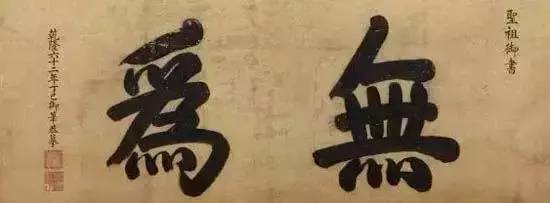 聖祖御書
無爲
乾隆六十二年丁巳御筆恭摹